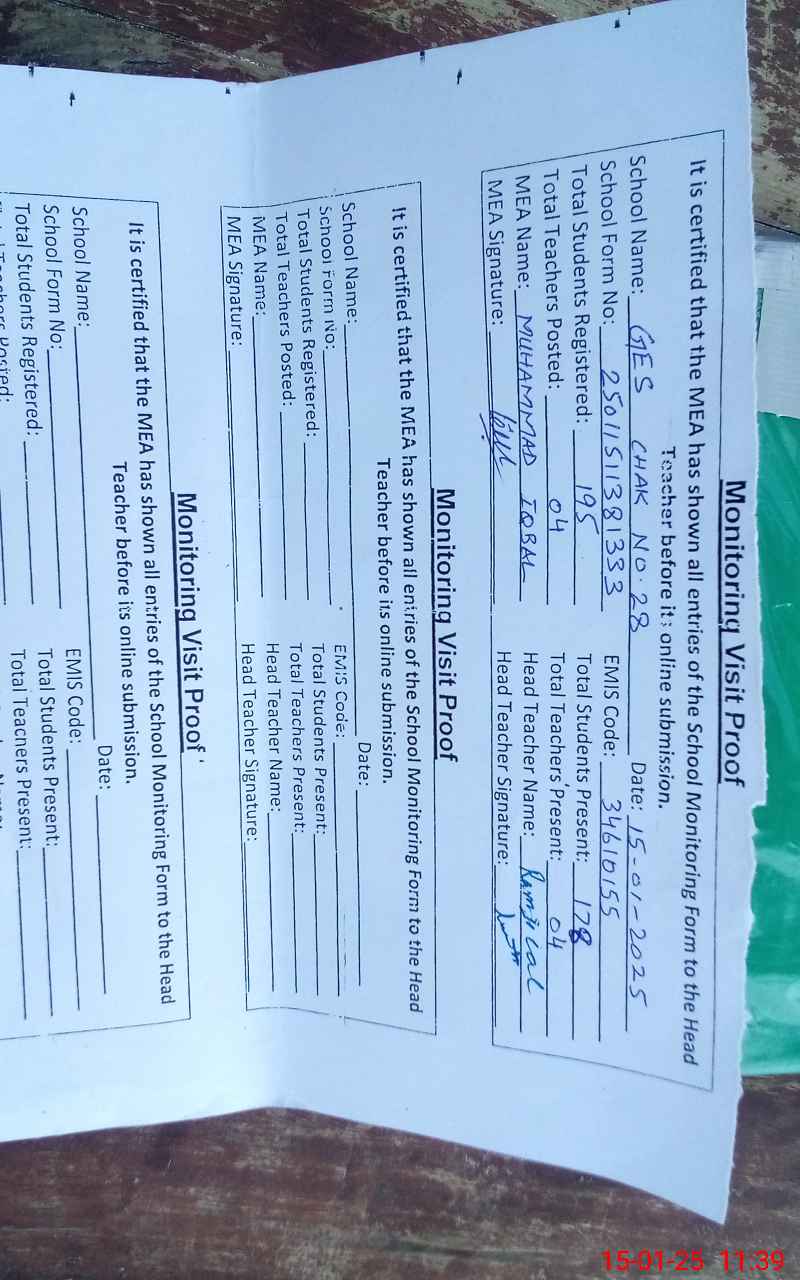 Monitoring Visit Proof
It is certified that the MEA has shown all entries of the School Monitoring Form to the Head
Teacher before its online submission.
School Name: GES CHAK NO. 28 Date: 15-01-2025
School Form No: 25011511381333 EMIS Code: 34610155
Total Students Registered: 195 Total Students Present: 178
Total Teachers Posted: 04 Total Teachers Present: 04
MEA Name: MUHAMMAD IQBAL Head Teacher Name:
MEA Signature: Head Teacher Signature:
Monitoring Visit Proof
It is certified that the MEA has shown all entries of the School Monitoring Form to the Head
Teacher before its online submission.
School Name: Date:
School Form No: EMIS Code:
Total Students Registered: Total Students Present:
Total Teachers Posted: Total Teachers Present:
MEA Name: Head Teacher Name:
MEA Signature: Head Teacher Signature:
Monitoring Visit Proof
It is certified that the MEA has shown all entries of the School Monitoring Form to the Head
Teacher before its online submission.
School Name: Date:
School Form No: EMIS Code:
Total Students Registered: Total Students Present:
Total Teachers Posted: Total Teachers Present:
15-01-25 11:39